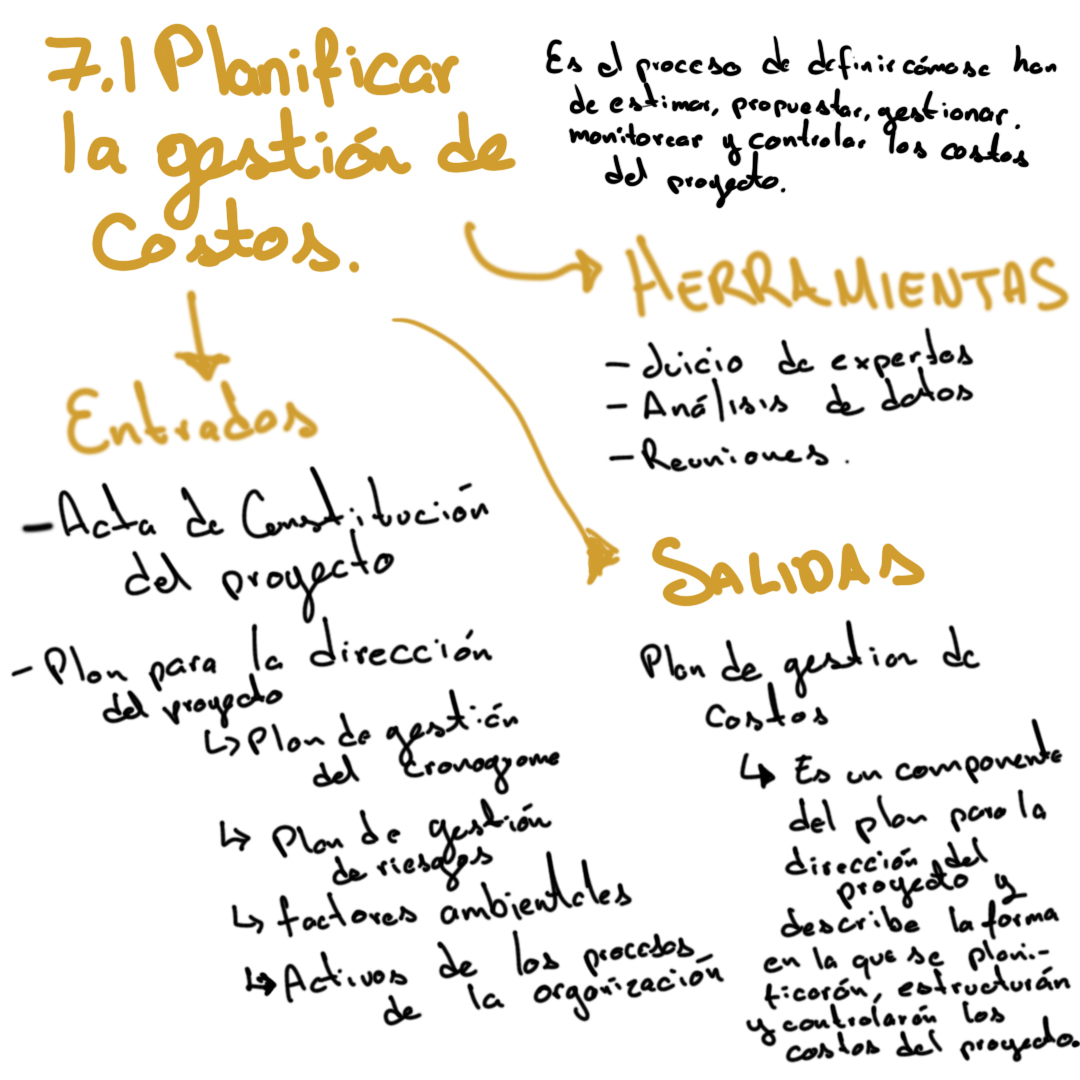 7.1 Planificar
la gestión de
Costos.
Es el proceso de definir cómo se han
de estimar, propuestar, gestionar.
monitorear y controlar los costos
del proyecto.
HERRAMIENTAS
- Juicio de expertos
- Análisis de datos
- Reuniones.
Entradas
- Acta de Constitución
del proyecto
- Plan para la dirección
del proyecto
↳ Plan de gestión
del cronograma
↳ Plan de gestión
de riesgos
↳ factores ambientales
↳ Activos de los procesos
de la organización
SALIDAS
Plan de gestion de
costos
↳ Es un componente
del plan para la
dirección del
proyecto y
describe la forma
en la que se plani-
ficarán, estructurán
y controlarán los
costos del proyecto.